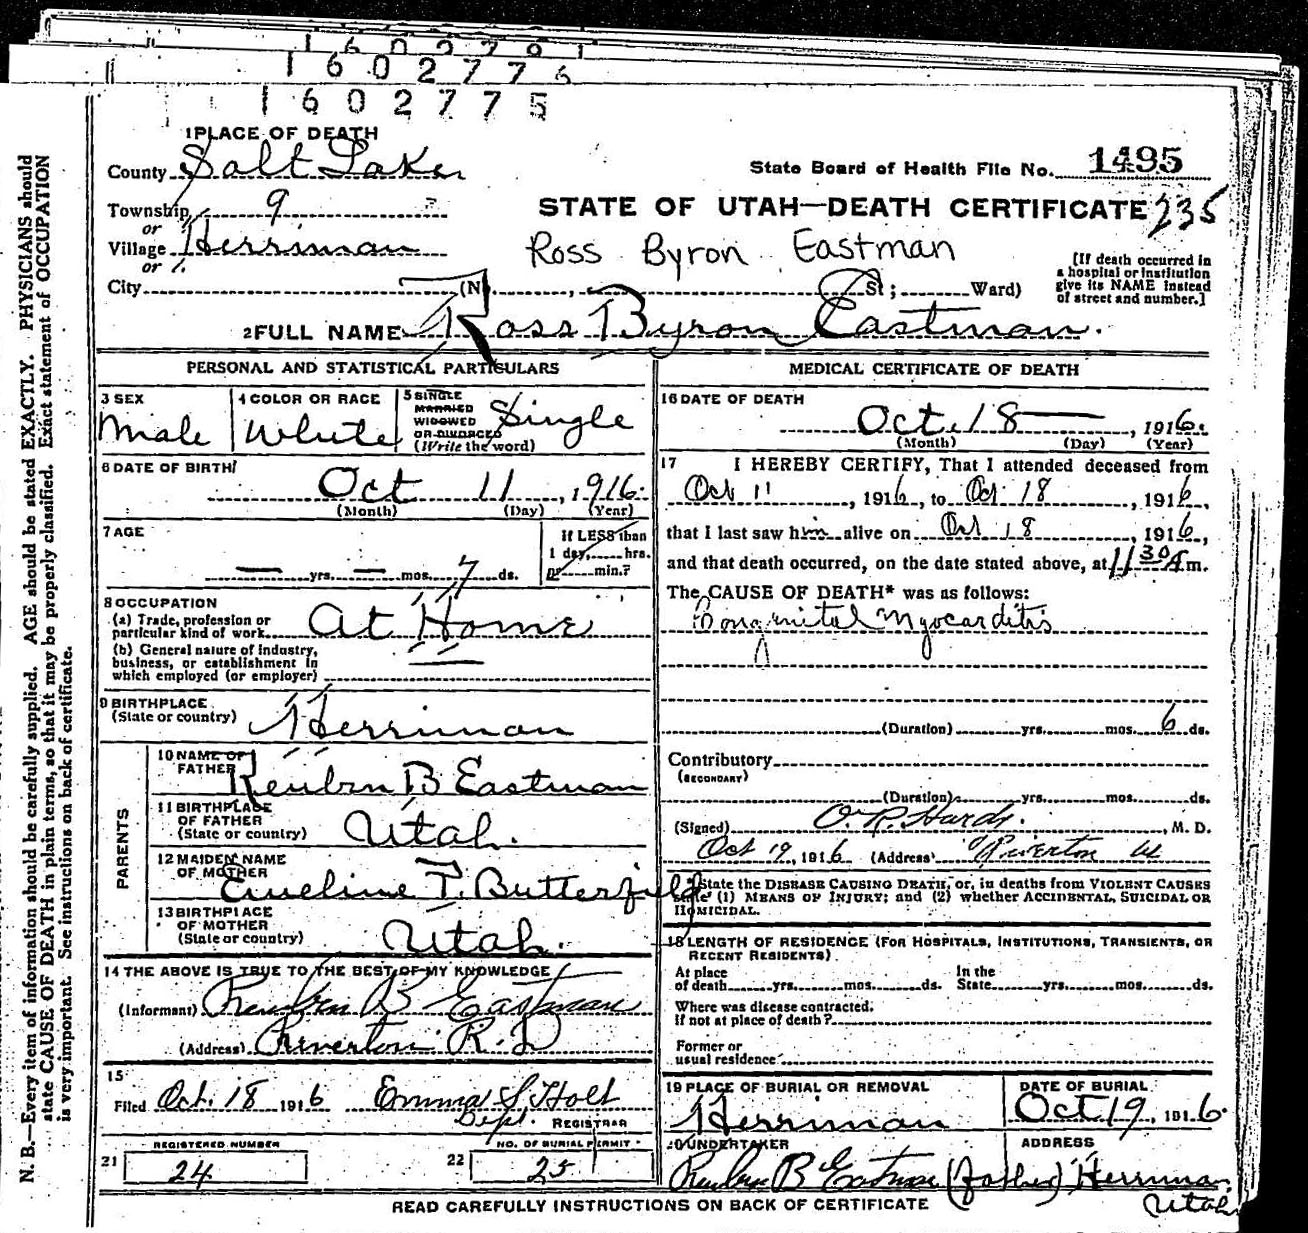 1602791
1602776
1602775
1 PLACE OF DEATH
County Salt Lake
State Board of Health File No. 1495
Township 9
or
STATE OF UTAH—DEATH CERTIFICATE 235
Village Herriman
or
Ross Byron Eastman
[If death occurred in
a hospital or institution
give its NAME instead
of street and number.]
City (No. , St; Ward)
2 FULL NAME Ross Byron Eastman.
PERSONAL AND STATISTICAL PARTICULARS
3 SEX
Male
4 COLOR OR RACE
White
5 SINGLE
MARRIED
WIDOWED
OR DIVORCED
(Write the word)
Single
6 DATE OF BIRTH
Oct 11, 1916.
(Month) (Day) (Year)
7 AGE
— yrs. — mos. 7 ds.
If LESS than
1 day, hrs.
or min.?
8 OCCUPATION
(a) Trade, profession or
particular kind of work At Home
(b) General nature of industry,
business, or establishment in
which employed (or employer)
9 BIRTHPLACE
(State or country) Herriman
PARENTS
10 NAME OF
FATHER Reuben B Eastman
11 BIRTHPLACE
OF FATHER
(State or country) Utah.
12 MAIDEN NAME
OF MOTHER Emeline T. Butterfield
13 BIRTHPLACE
OF MOTHER
(State or country) Utah.
14 THE ABOVE IS TRUE TO THE BEST OF MY KNOWLEDGE
(Informant) Reuben B Eastman
(Address) Riverton R.D
15
Filed Oct. 18 1916 Emma S Holt
Dept. REGISTRAR
REGISTERED NUMBER
21 24
NO. OF BURIAL PERMIT
22 25
MEDICAL CERTIFICATE OF DEATH
16 DATE OF DEATH
Oct. 18, 1916.
(Month) (Day) (Year)
17 I HEREBY CERTIFY, That I attended deceased from
Oct 11, 1916, to Oct 18, 1916,
that I last saw him alive on Oct 18, 1916,
and that death occurred, on the date stated above, at 11 30 A m.
The CAUSE OF DEATH* was as follows:
Congenital Myocarditis
(Duration) yrs. mos. 6 ds.
Contributory
(SECONDARY)
(Duration) yrs. mos. ds.
(Signed) O. R. Hardy. , M. D.
Oct 19, 1916 (Address) Riverton Ut
State the DISEASE CAUSING DEATH, or, in deaths from VIOLENT CAUSES
state (1) MEANS OF INJURY; and (2) whether ACCIDENTAL, SUICIDAL OR
HOMICIDAL.
18 LENGTH OF RESIDENCE (FOR HOSPITALS, INSTITUTIONS, TRANSIENTS, OR
RECENT RESIDENTS)
At place
of death yrs. mos. ds.
In the
State yrs. mos. ds.
Where was disease contracted.
If not at place of death?
Former or
usual residence
19 PLACE OF BURIAL OR REMOVAL
Herriman
DATE OF BURIAL
Oct 19, 1916.
20 UNDERTAKER
Reuben B Eastman (father)
ADDRESS
Herriman
Utah
READ CAREFULLY INSTRUCTIONS ON BACK OF CERTIFICATE
N. B.—Every item of information should be carefully supplied. AGE should be stated EXACTLY. PHYSICIANS should
state CAUSE OF DEATH in plain terms, so that it may be properly classified. Exact statement of OCCUPATION
is very important. See instructions on back of certificate.